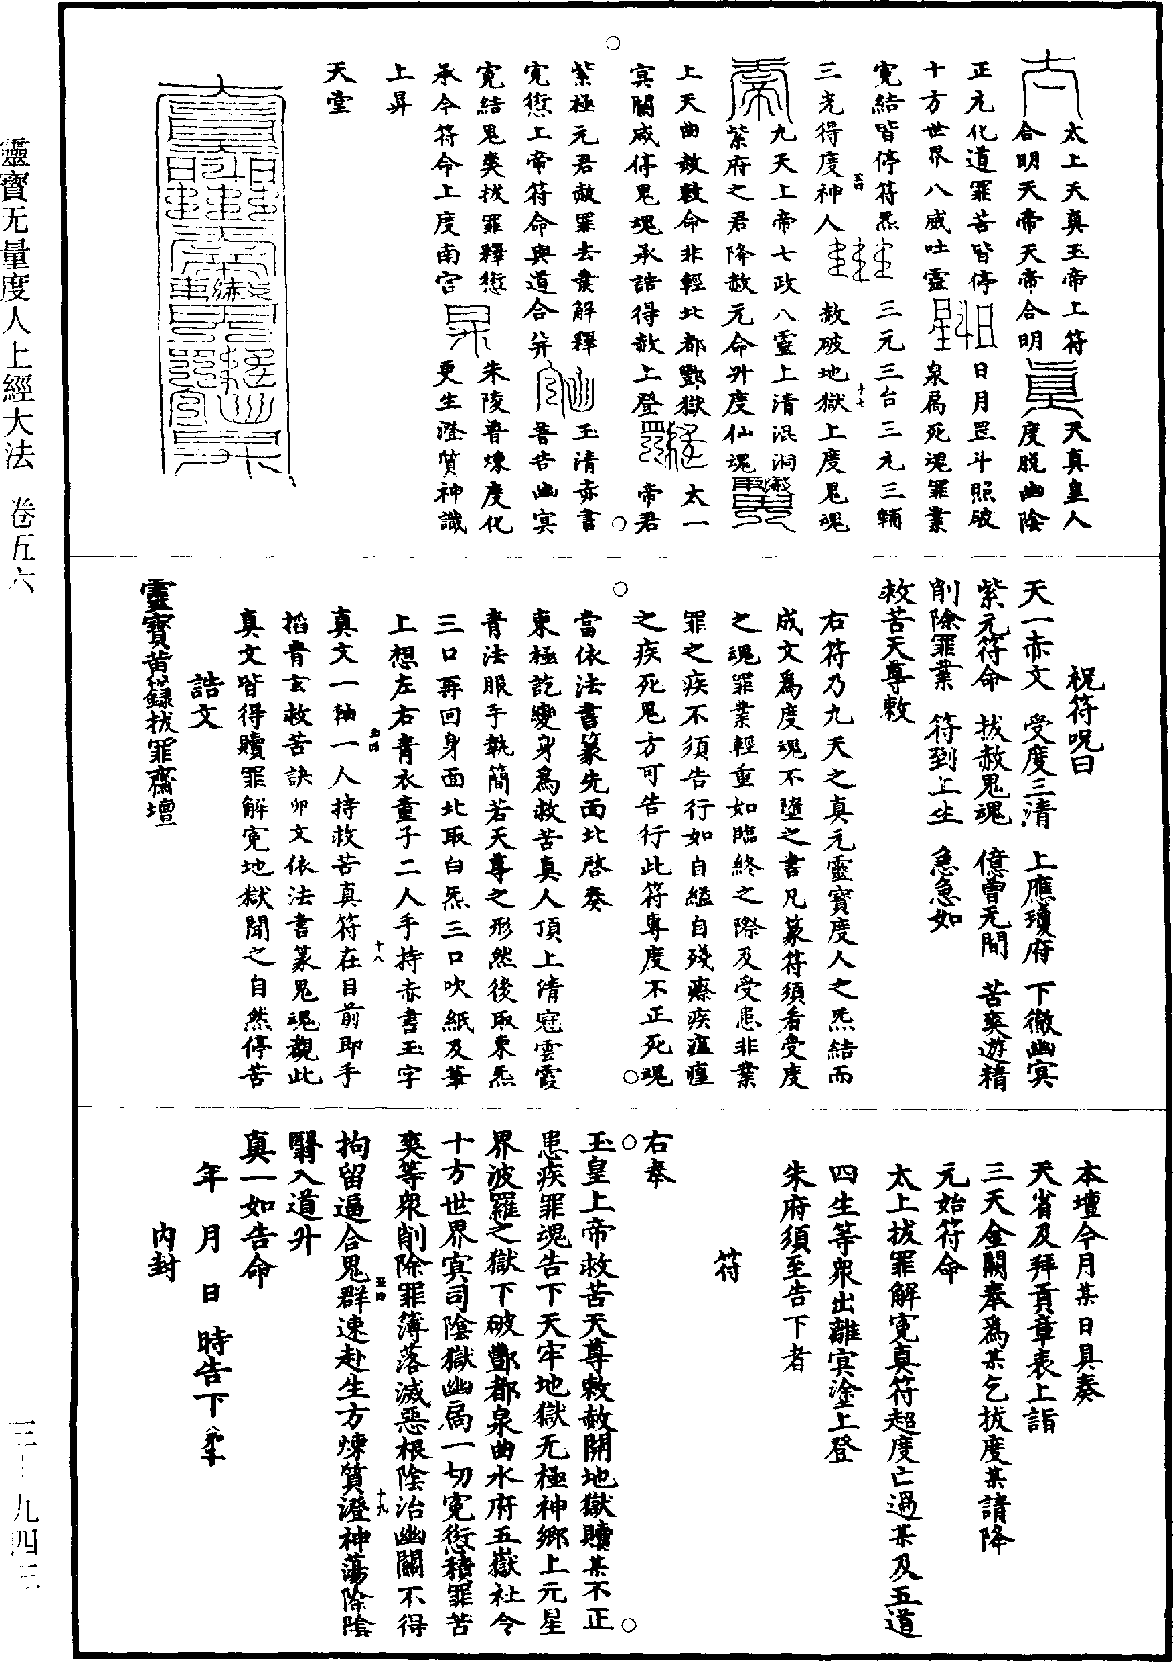 太上天真玉帝上符
合明天帝天帝合明　天真皇人
正炁化道罪苦皆停　度脫幽陰
十方世界八威吐靈　日月罡斗照破
寃結皆停符炁　泉扃死魂罪業
三光得度神人　三元三台三元三輔
赦破地獄上度鬼魂
九天上帝七政八靈上清混洞
紫府之君降赦元命升度仙魂
上天曲赦敕命非輕北都酆獄　太一
冥關咸停鬼魂承誥得赦上登　帝君
紫極元君赦罪去業解釋　玉清赤書
寃愆上帝符命與道合并　普告幽冥
寃結鬼爽拔罪釋愆　朱陵普煉度化
承今符命上度南宮　更生澄質神識
上昇
天堂
祝符呪曰
天一赤文　受度三清　上應瓊府　下徹幽冥
紫元符命　拔赦鬼魂　億曾无間　苦爽遊精
削除罪業　符到上生　急急如
救苦天尊敕
右符乃九天之真元靈寶度人之炁結而
成文爲度魂不墮之書凡篆符須看受度
之魂罪業輕重如臨終之際及受患非業
罪之疾不須告行如自縊自殘療疾瘟㾮
之疾死鬼方可告行此符專度不正死魂
當依法書篆先面北啓奏
東極訖變身爲救苦真人頂上清冠雲霞
青法服手執簡若天尊之形然後取東炁
三口再回身面北取白炁三口吹紙及筆
上想左右青衣童子二人手持赤書玉字
真文一軸一人持救苦真符在目前即手
掐青玄救苦訣卯文依法書篆鬼魂覩此
真文皆得贖罪解寃地獄聞之自然停苦
誥文
靈寶黃籙拔罪齋壇
本壇今月某日具奏
天省及拜貢章表上詣
三天金闕奉爲某乞拔度某請降
元始符命
太上拔罪解寃真符超度亡過某及五道
四生等衆出離冥塗上登
朱府須至告下者
符
右奉
玉皇上帝救苦天尊敕赦開地獄贖某不正
患疾罪魂告下天牢地獄无極神鄉上元星
界波羅之獄下破酆都泉曲水府五嶽社令
十方世界冥司陰獄幽扃一切寃愆積罪苦
爽等衆削除罪簿落滅惡根陰治幽關不得
拘留逼合鬼群速赴生方煉質澄神蕩除陰
翳入道升
真一如告命
年　月　日　時告下
內封
靈寶无量度人上經大法　卷五六
三－九四三